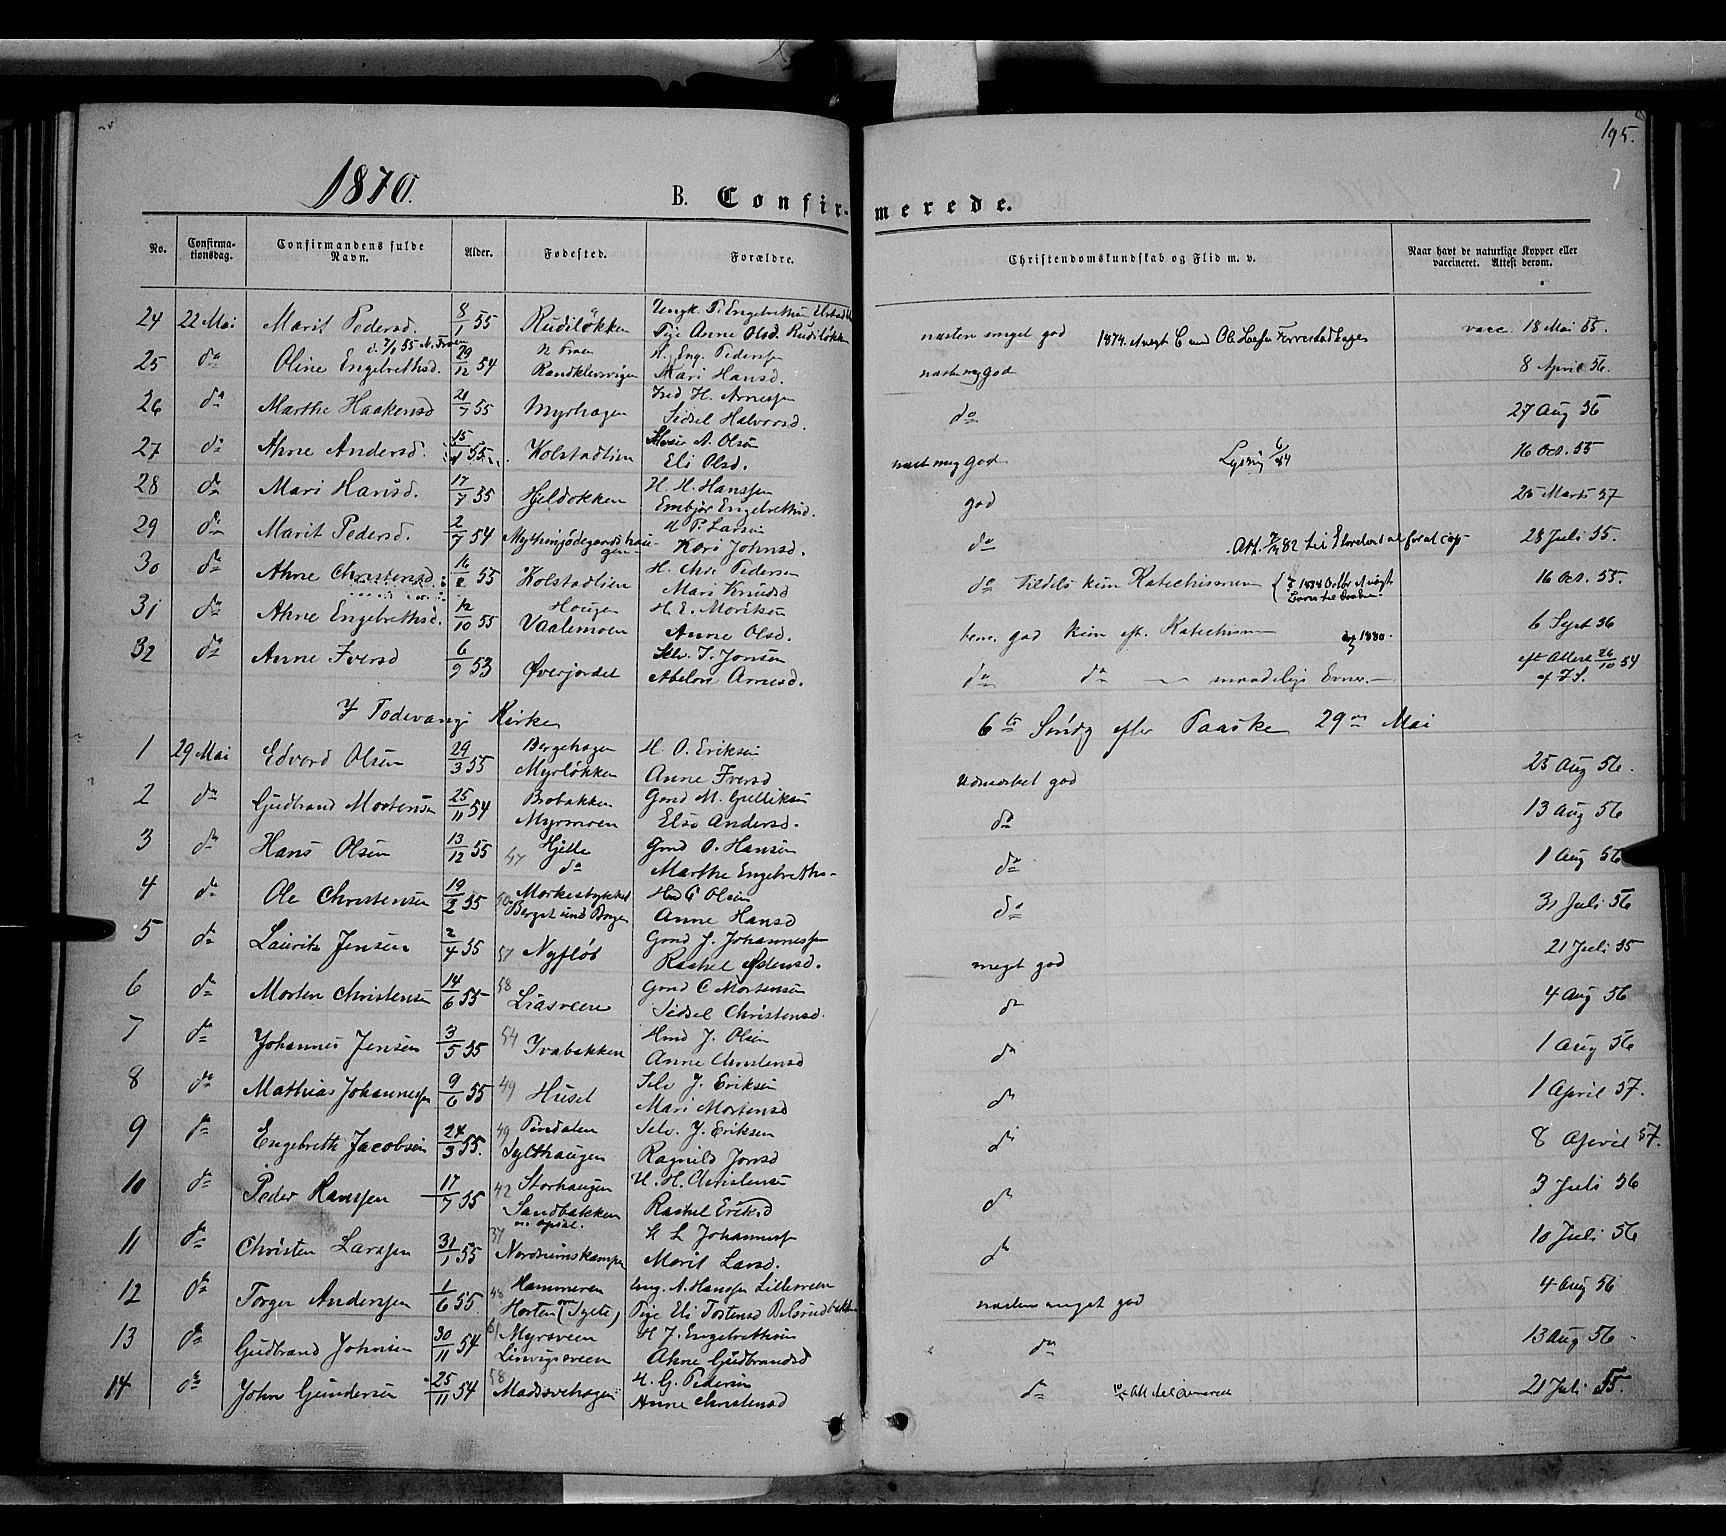 195.
1870.
B. Confirmerede.
No. Confirmationsdag. Confirmandens fulde Navn. Alder. Fødested. Forældre. Christendomskundskab og Flid m. v. Naar havt de naturlige Kopper eller vaccineret. Attest derom.
24 22 Mai Marit Pedersd. 8/1 55 Rudiløkken Ungk. P. Engebrethsen Pige Anne Olsd. Rudiløkken næsten meget god 1874 vacc. 18 Mai 55.
25 do Oline Engebrethsd. 29/12 54 Randklevsvigen H. Eng. Pedersen Mari Hansd. næsten mg god 8 April 56.
26 do Marthe Haakensd 21/7 55 Myrhagen Ind H. Arnesen Sidsel Halvorsd. do 27 Aug 56
27 do Ahne Andersd. 15/4 55 Kolstadlien A. Olsen Eli Olsd. næst meg god 6/84 16 Oct. 55
28 do Mari Hansd. 17/7 55 Hjeldokken H. H. Hanssen Embjør Engebrethsd. god 25 Marts 57
29 do Marit Pedersd. 2/7 54 P. Larsen Kari Johnsd. do 28 Juli 55.
30 do Ahne Christensd 16/2 55 Kolstadlien H. Chr. Pedersen Mari Knudsd do tildels kun Katechismen 16 Oct. 55.
31 do Ahne Engebrethsd. 12/10 55 Haugen Vaalemoen H. E. Mortksen Anne Olsd. temt. god kun eft. Katechism 1880. 6 Sept 56
32 do Anne Iversd 6/9 53 Øverjordet Selv. I. Jonsen Abelone Arnesd. do do maadelige Evner. eft Attest 26/10 54
I Fodevangs Kirke
6te Søndg efter Paaske 29de Mai
1 29 Mai Edvard Olsen 29/3 55 Bergehagen Myrløkken H. O. Eriksen Anne Iversd Udmærket god 25 Aug 56.
2 do Gudbrand Mortensen 25/11 54 Brobakken Myrmoen Gmd M. Gulliksen Else Andersd. do 13 Aug 56
3 do Hans Olsen 13/12 55 57 Hjelle do Gmd O. Hansen Marthe Engebrethsd do 1 Aug 56
4 do Ole Christensen 19/2 55 Hmd C Olsen Anne Hansd do 31 Juli 56
5 do Laurits Jensen 2/4 55 57 Nyfløt Gmd J. Johannesen Rachel Ostensd. meget god 21 Juli 55
6 do Morten Christensen 14/6 55 58 Liasveen Gmd C Mortensen Sidsel Christensd. do 4 Aug 56
7 do Johannes Jensen 3/5 55 54 Ivabakken Hmd J. Olsen Anne Christensd do 1 Aug 56
8 do Mathias Johannesen 9/6 55 49 Huset Selv J. Eriksen Mari Mortensd do 1 April 57.
9 do Engebreth Jacobsen 24/3 55. 49 Tindalen Sylthaugen Selv. J. Eriksen Ragnild Jonsd do 8 April 57.
10 do Peder Hanssen 17/7 55 42 Storhaugen Sandbakken H. H. Christensen Rachel Eriksd do 3 Juli 56
11 do Christen Larssen 31/1 55 37 Nordrumskampen H L Johannesen Marit Larsd. do 10 Juli 56
12 do Torger Andersen 1/6 55. 48 Hammeren Horten Ung. A. Hanssen Lillesveen Pige Eli Tostensd næsten meget god 4 Aug 56
13 do Gudbrand Johnsen 30/11 54 61 Myrsveen H J. Engebrethsen Ahne Gudbrandsd do 13 Aug 56
14 do John Gundersen 25/11 54 58 Madssvehagen H. G. Pedersen Anne Christensd do 21 Juli 55.